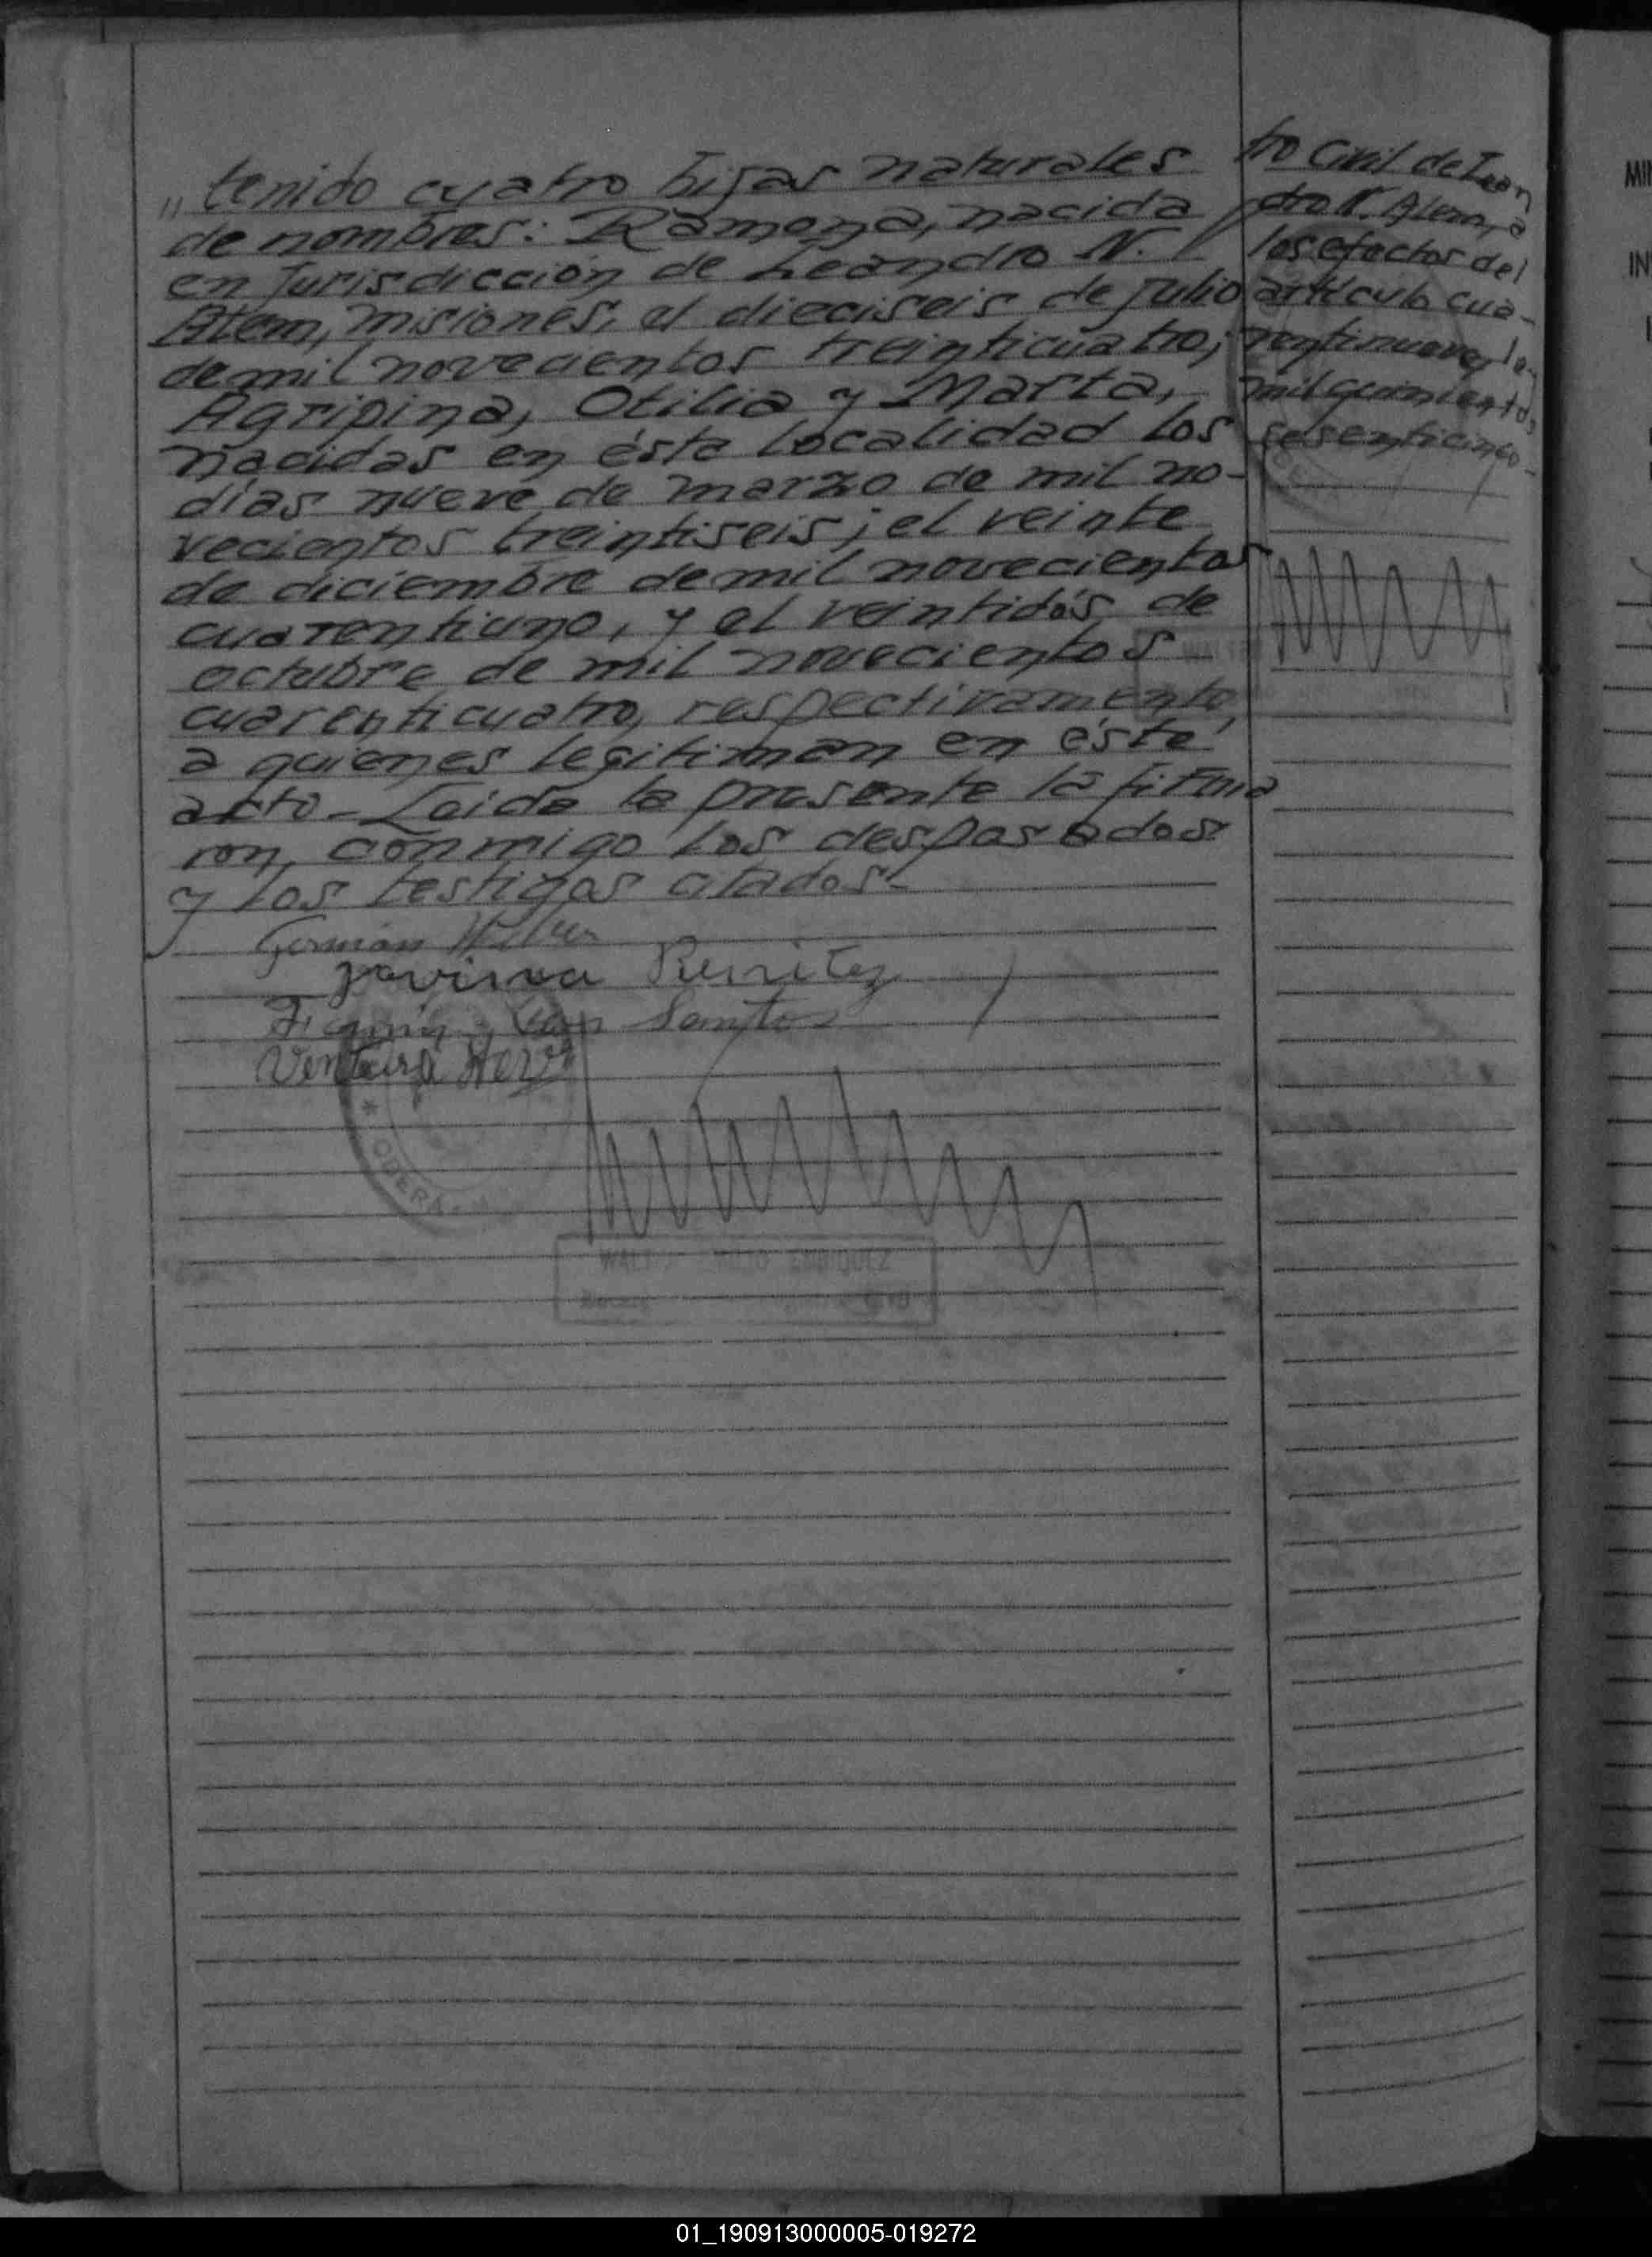 „ tenido cuatro hijas naturales
de nombres: Ramona, nacida
en Jurisdicción de Leandro N.
Alem, Misiones, el dieciseis de julio
de mil novecientos treinticuatro;
Agripina, Otilia y Marta,
nacidas en ésta localidad los
días nueve de marzo de mil no-
vecientos treintiseis; el veinte
de diciembre de mil novecientos
cuarentiuno, y el veintidós de
octubre de mil novecientos
cuarenticuatro, respectivamente,
a quienes legitiman en éste
acto.- Leida la presente la firma
ron, conmigo los desposados
y los testigos citados.-
German
Jovina Benitez
Santos
Ventura
* OBERA
WALT ENRIQUEZ
tro Civil de Lean
dro N. Alem, a
los efectos del
artículo cua-
rentinueve, ley
mil quinientos
sesenticinco-
MIN
IN
01_190913000005-019272